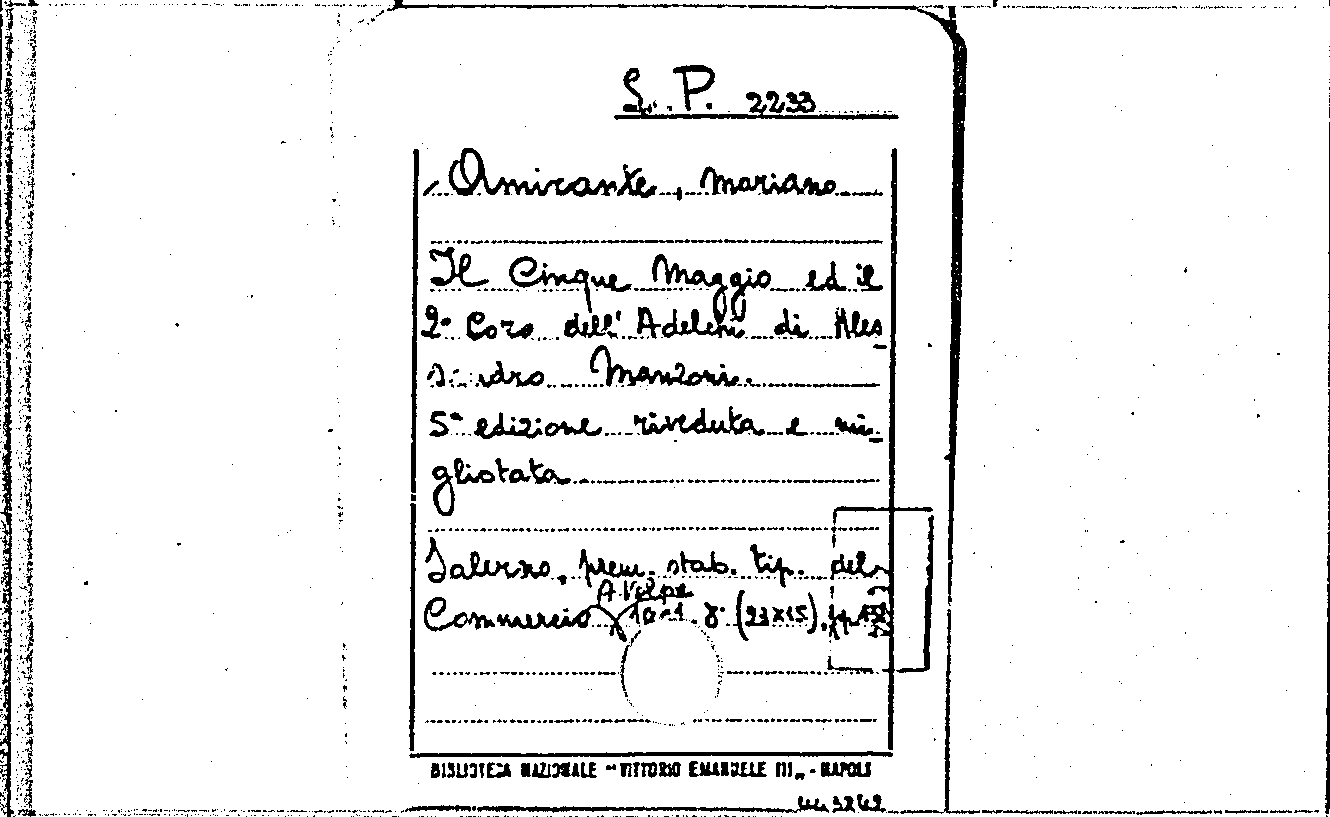 S. P. 2233
Amirante, Mariano
Il Cinque Maggio ed il
2° Coro dell'Adelchi di Ales
sandro Manzoni.
5ª edizione riveduta e mi_
gliorata
Salerno, prem. stab. tip. del
A. Volpe
Commercio 8° (23x15), pp.
BIBLIOTECA NAZIONALE "VITTORIO EMANUELE III„ - NAPOLI